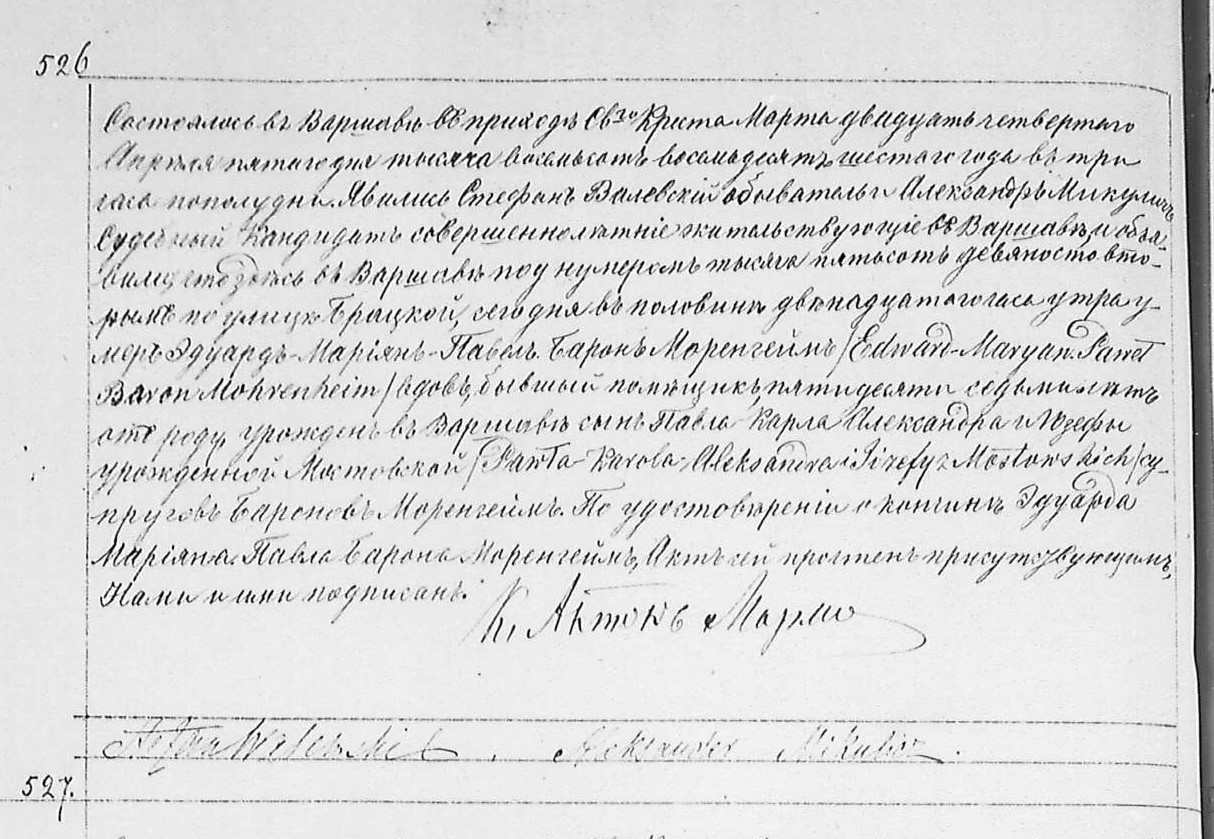 526
Состоялось въ Варшавѣ въ приходѣ Св.го Креста Марта двадцать четвертаго
Апрѣля пятаго дня тысяча восемьсотъ восемьдесятъ шестаго года въ три
часа пополудни. Явились Стефанъ Валевскій обыватель и Александръ Микуличъ
Судебный Кандидатъ совершеннолѣтніе жительствующіе въ Варшавѣ, и объя-
вили что здѣсь въ Варшавѣ под нумеромъ тысяча пятьсотъ девяносто вто-
рымъ по улицѣ Брацкой, сегодня въ половинѣ двѣнадцатаго часа утра у-
меръ Эдуардъ-Маріянъ-Павелъ Баронъ Моренгеймъ /Edward-Maryan-Paweł
Baron Mohrenheim/ вдовъ, бывшій помѣщикъ, пятидесяти седьми лѣтъ
отъ роду, урожденъ въ Варшавѣ сынъ Павла-Карла-Александра и Юзефы
урожденной Мостовской /Pawła-Karola-Aleksandra i Józefy z Mostowskich/ су-
пруговъ Бароновъ Моренгеймъ. По удостовѣреніи о кончинѣ Эдуарда
Маріяна-Павла Барона Моренгеймъ, Актъ сей прочтенъ присутствующимъ,
Нами и ими подписанъ.
К. Антонъ
Stefan Walewski
Aleksander Mikulicz.
527.